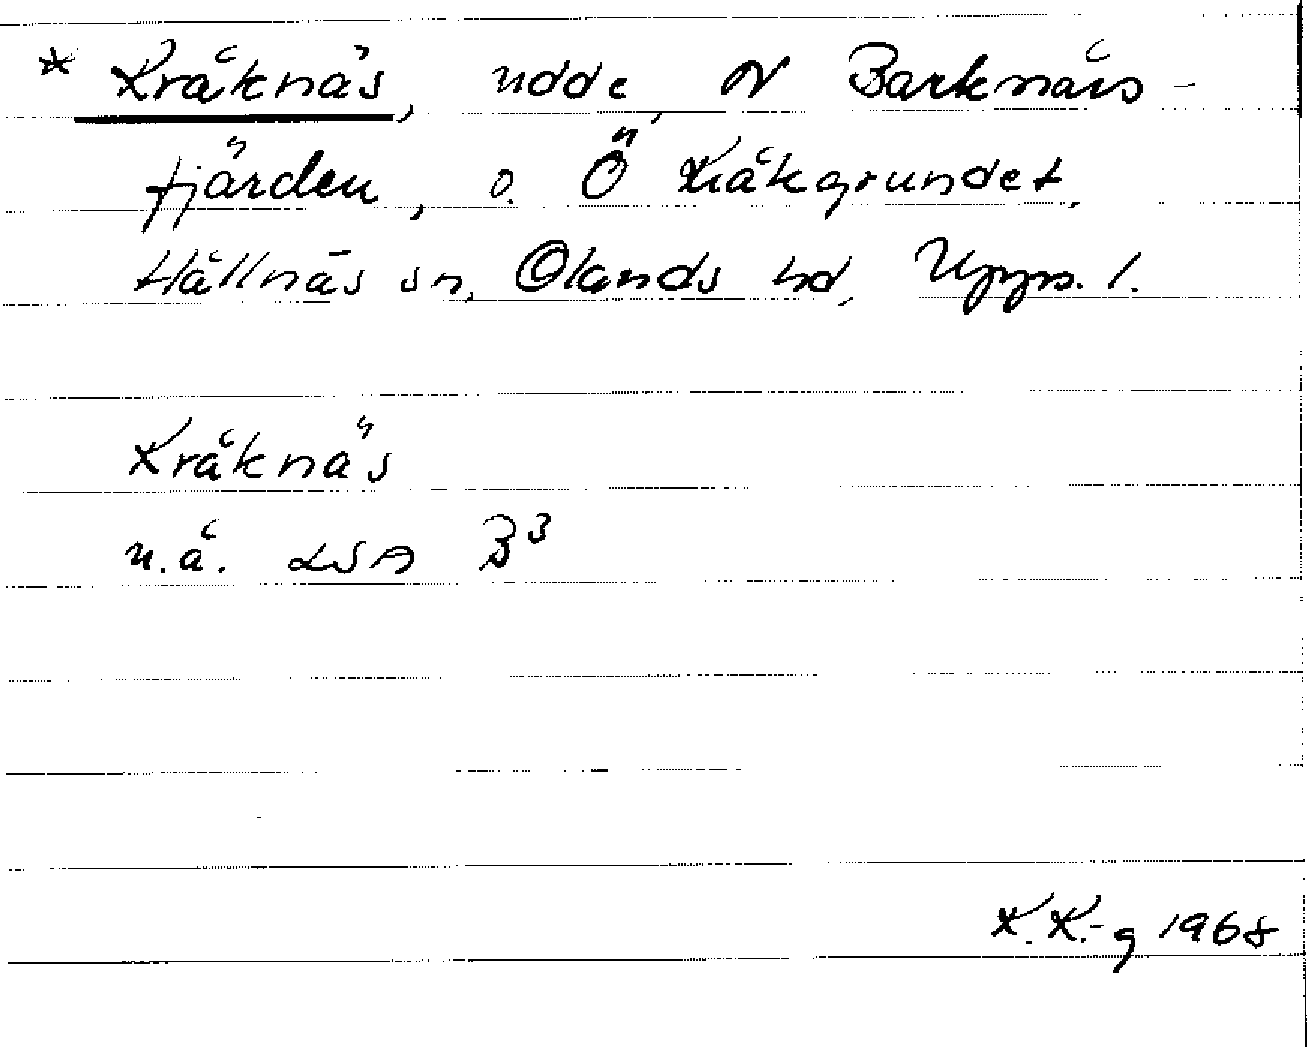 * Kråknäs, udde N Barknårs-
fjärden, o. Ö Kråkgrundet,
Hållnäs sn, Olands hd, Upps. l.
Kråknäs
u.å. LSA B3
K.K-g 1968